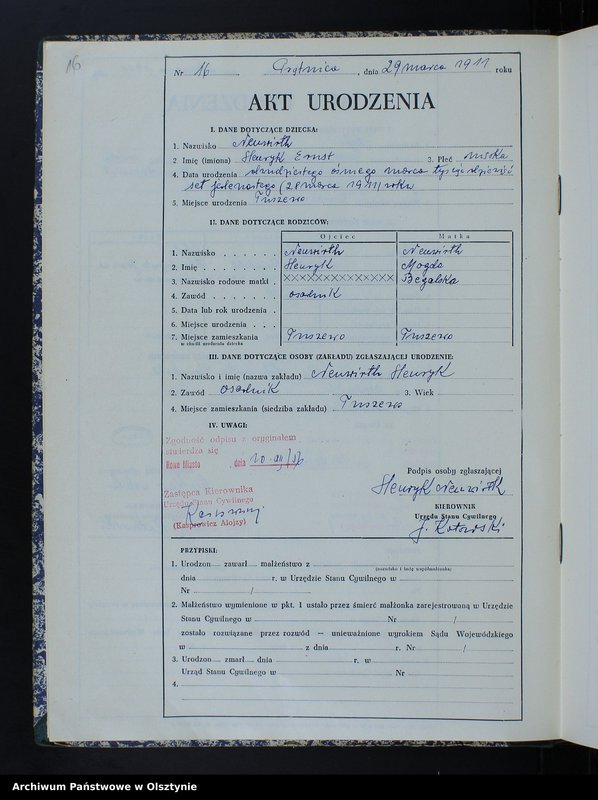 16
Nr 16 , dnia 29 marca 1911 roku
AKT URODZENIA
I. DANE DOTYCZĄCE DZIECKA:
1. Nazwisko Neuwirth
2. Imię (imiona) Henryk Ernst 3. Płeć męska
4. Data urodzenia dwudziestego ósmego marca tysiąc dziewięć
set jedenastego (28 marca 1911) roku
5. Miejsce urodzenia Tuszewo
II. DANE DOTYCZĄCE RODZICÓW:
Ojciec Matka
1. Nazwisko Neuwirth Neuwirth
2. Imię Henryk Magda
3. Nazwisko rodowe matki XXXXXXXXXXXX Begalska
4. Zawód osadnik
5. Data lub rok urodzenia
6. Miejsce urodzenia
7. Miejsce zamieszkania Tuszewo Tuszewo
w chwili urodzenia dziecka
III. DANE DOTYCZĄCE OSOBY (ZAKŁADU) ZGŁASZAJĄCEJ URODZENIE:
1. Nazwisko i imię (nazwa zakładu) Neuwirth Henryk
2. Zawód osadnik 3. Wiek
4. Miejsce zamieszkania (siedziba zakładu) Tuszewo
IV. UWAGI:
Zgodność odpisu z oryginałem
stwierdza się
Nowe Miasto dnia
Zastępca Kierownika
Urzędu Stanu Cywilnego
(Kasprowicz Alojzy)
Podpis osoby zgłaszającej
Henryk Neuwirth
KIEROWNIK
Urzędu Stanu Cywilnego
J. Kotowski
PRZYPISKI:
1. Urodzon zawarł małżeństwo z
(nazwisko i imię współmałżonka)
dnia r. w Urzędzie Stanu Cywilnego w
Nr /
2. Małżeństwo wymienione w pkt. 1 ustało przez śmierć małżonka zarejestrowaną w Urzędzie
Stanu Cywilnego w Nr /
zostało rozwiązane przez rozwód — unieważnione wyrokiem Sądu Wojewódzkiego
w z dnia r. Nr /
3. Urodzon zmarł dnia r. w
Urząd Stanu Cywilnego w Nr
4.
Archiwum Państwowe w Olsztynie